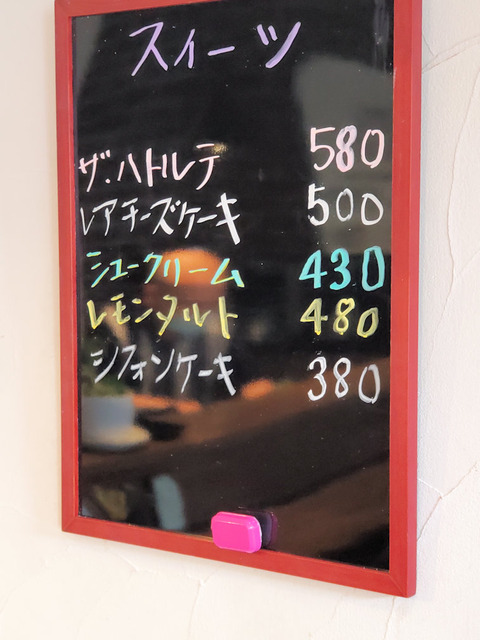 スイーツ
ザ・ハトルテ 580
レアチーズケーキ 500
シュークリーム 430
レモンタルト 480
シフォンケーキ 380